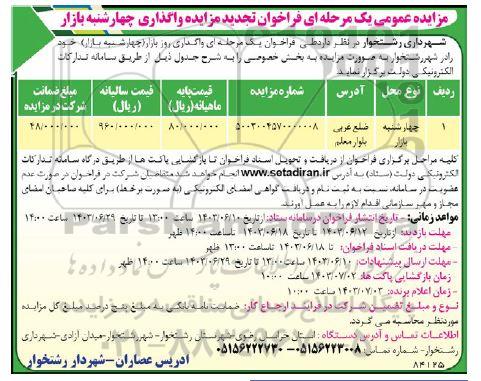 مزایده عمومی یک مرحله ای فراخوان تجدید مزایده واگذاری چهارشنبه بازار
شهرداری رشتخوار در نظر دارد طی فراخوان یک مرحله ای واگذاری روز بازار (چهارشنبه بازار) خود
را در شهر رشتخوار به صورت مزایده به بخش خصوصی را به شرح جدول ذیل از طریق سامانه تدارکات
الکترونیکی دولت برگزار نماید.
ردیف نوع محل آدرس شماره مزایده قیمت پایه ماهیانه (ریال) قیمت سالیانه (ریال) مبلغ ضمانت شرکت در مزایده
۱ چهارشنبه بازار ضلع غربی بلوار معلم ۵۰۰۳۰۰۴۵۷۰۰۰۰۰۰۸ ۸۰/۰۰۰/۰۰۰ ۹۶۰/۰۰۰/۰۰۰ ۴۸/۰۰۰/۰۰۰
کلیه مراحل برگزاری فراخوان از دریافت و تحویل اسناد فراخوان تا بازگشایی پاکت ها از طریق درگاه سامانه تدارکات
الکترونیکی دولت (ستاد) به آدرس www.setadiran.ir انجام خواهد شد متقاضیان شرکت در فراخوان در صورت عدم
عضویت در سامانه، نسبت به ثبت نام و دریافت گواهی امضای الکترونیکی (به صورت برخط) برای کلیه صاحبان امضای
مجاز و مهر سازمانی اقدام لازم را به عمل آورند.
مواعد زمانی: - تاریخ انتشار فراخوان در سامانه ستاد: از تاریخ ۱۴۰۳/۰۶/۱۰ ساعت ۱۳:۰۰ تا تاریخ ۱۴۰۳/۰۶/۲۹ ساعت ۱۴:۰۰
- مهلت بازدید: از تاریخ ۱۴۰۳/۰۶/۱۲ تا تاریخ ۱۴۰۳/۰۶/۱۸ تا ساعت ۱۳:۰۰ ظهر
- مهلت دریافت اسناد فراخوان: تا ۱۴۰۳/۰۶/۱۸ تا ساعت ۱۳:۰۰ ظهر
- مهلت ارسال پیشنهادات: ۱۴۰۳/۰۶/۱۰ ساعت ۱۳:۰۰ تا تاریخ ۱۴۰۳/۰۶/۲۹ ساعت ۱۴:۰۰ ظهر
زمان بازگشایی پاکت ها: ۱۴۰۳/۰۷/۰۲ ساعت ۱۰:۰۰
- زمان اعلام برنده: ۱۴۰۳/۰۷/۰۳ ساعت ۱۰:۰۰
نوع و مبلغ تضمین شرکت در فرایند ارجاع کار: ضمانت نامه بانکی به مبلغ پنج درصد مبلغ کل مزایده
مورد نظر محاسبه می گردد.
اطلاعات تماس و آدرس دستگاه: استان خراسان رضوی-شهرستان رشتخوار-شهر رشتخوار-میدان آزادی-شهرداری
رشتخوار- شماره تماس: ۰۵۱۵۶۲۲۳۰۰۸-۰۵۱۵۶۲۲۲۷۳۰
۸۴۱۲۵ ادریس عصاران-شهردار رشتخوار